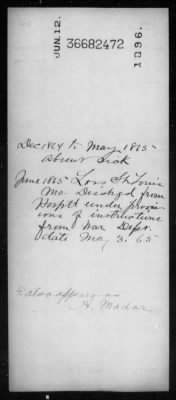 JUN.12.
36682472
1896.
Dec 1864 to May 1865
absent Sick
June 1865 Loss St Louis
Mo. Dischgd from
Hosptl under provis
ions of instructions
from War Dept.
date May 3. 65
also appears as
H. Madar